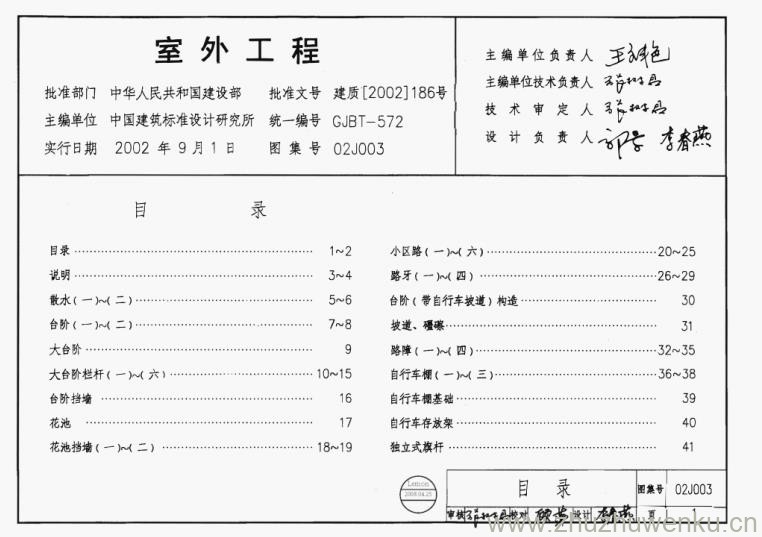 室外工程
批准部门 中华人民共和国建设部 批准文号 建质[2002]186号
主编单位 中国建筑标准设计研究所 统一编号 GJBT-572
实行日期 2002 年 9 月 1 日 图集号 02J003
主编单位负责人
主编单位技术负责人
技术审定人
设计负责人 李春燕
目录
目录 1~2
说明 3~4
散水(一)~(二) 5~6
台阶(一)~(二) 7~8
大台阶 9
大台阶栏杆(一)~(六) 10~15
台阶挡墙 16
花池 17
花池挡墙(一)~(二) 18~19
小区路(一)~(六) 20~25
路牙(一)~(四) 26~29
台阶(带自行车坡道)构造 30
坡道、礓磜 31
路障(一)~(四) 32~35
自行车棚(一)~(三) 36~38
自行车棚基础 39
自行车存放架 40
独立式旗杆 41
Lemon
2008.04.25
目录 图集号 02J003
审核 校对 设计 页 1
www.zhuzhuwenku.cn